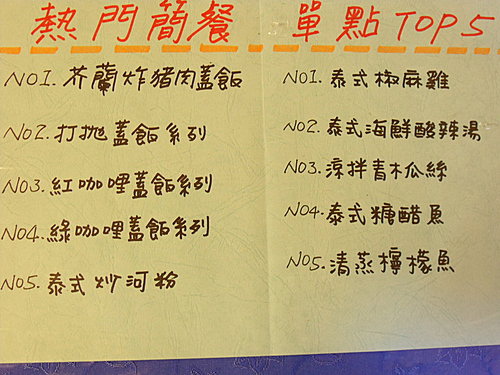 熱門簡餐
NO1. 芥蘭炸豬肉蓋飯
NO2. 打抛蓋飯系列
NO3. 紅咖哩蓋飯系列
NO4. 綠咖哩蓋飯系列
NO5. 泰式炒河粉
單點TOP5
NO1. 泰式椒麻雞
NO2. 泰式海鮮酸辣湯
NO3. 涼拌青木瓜絲
NO4. 泰式糖醋魚
NO5. 清蒸檸檬魚